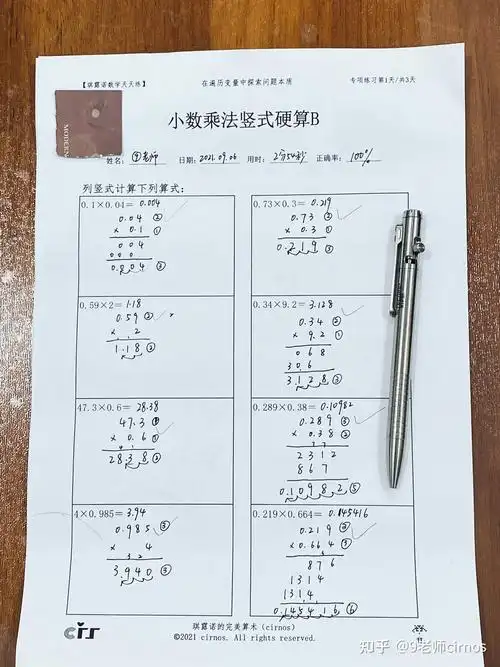 【琪露诺数学天天练】 在遍历变量中探索问题本质 专项练习第1天/共3天
MODERN
小数乘法竖式硬算B
姓名：⑨老师 日期：2021.09.06 用时：2分54秒 正确率：100%
列竖式计算下列算式：
0.1×0.04= 0.004
0.04 ②
× 0.1 ①
0 0 4
0 0 0
0.0 0 4 ③
0.73×0.3= 0.219
0.73 ②
× 0.3 ①
0.2 1 9 ③
0.59×2= 1.18
0.59 ②
× 2
1.1 8 ②
0.34×9.2= 3.128
0.34 ②
× 9.2 ①
0 6 8
3 0 6
3.1 2 8 ③
47.3×0.6= 28.38
47.3 ①
× 0.6 ①
28.3 8 ②
0.289×0.38= 0.10982
0.289 ③
× 0.38 ②
2 3 1 2
8 6 7
0.1 0 9 8 2 ⑤
4×0.985= 3.94
0.985 ③
× 4
3.9 4 0 ③
0.219×0.664= 0.145416
0.219 ③
×0.664 ③
8 7 6
1 3 1 4
1 3 1 4
0.1 4 5 4 1 6 ⑥
cirs
琪露诺的完美算术（cirnos）
©2021 cirnos. All rights reserved.
知乎 @9老师cirnos